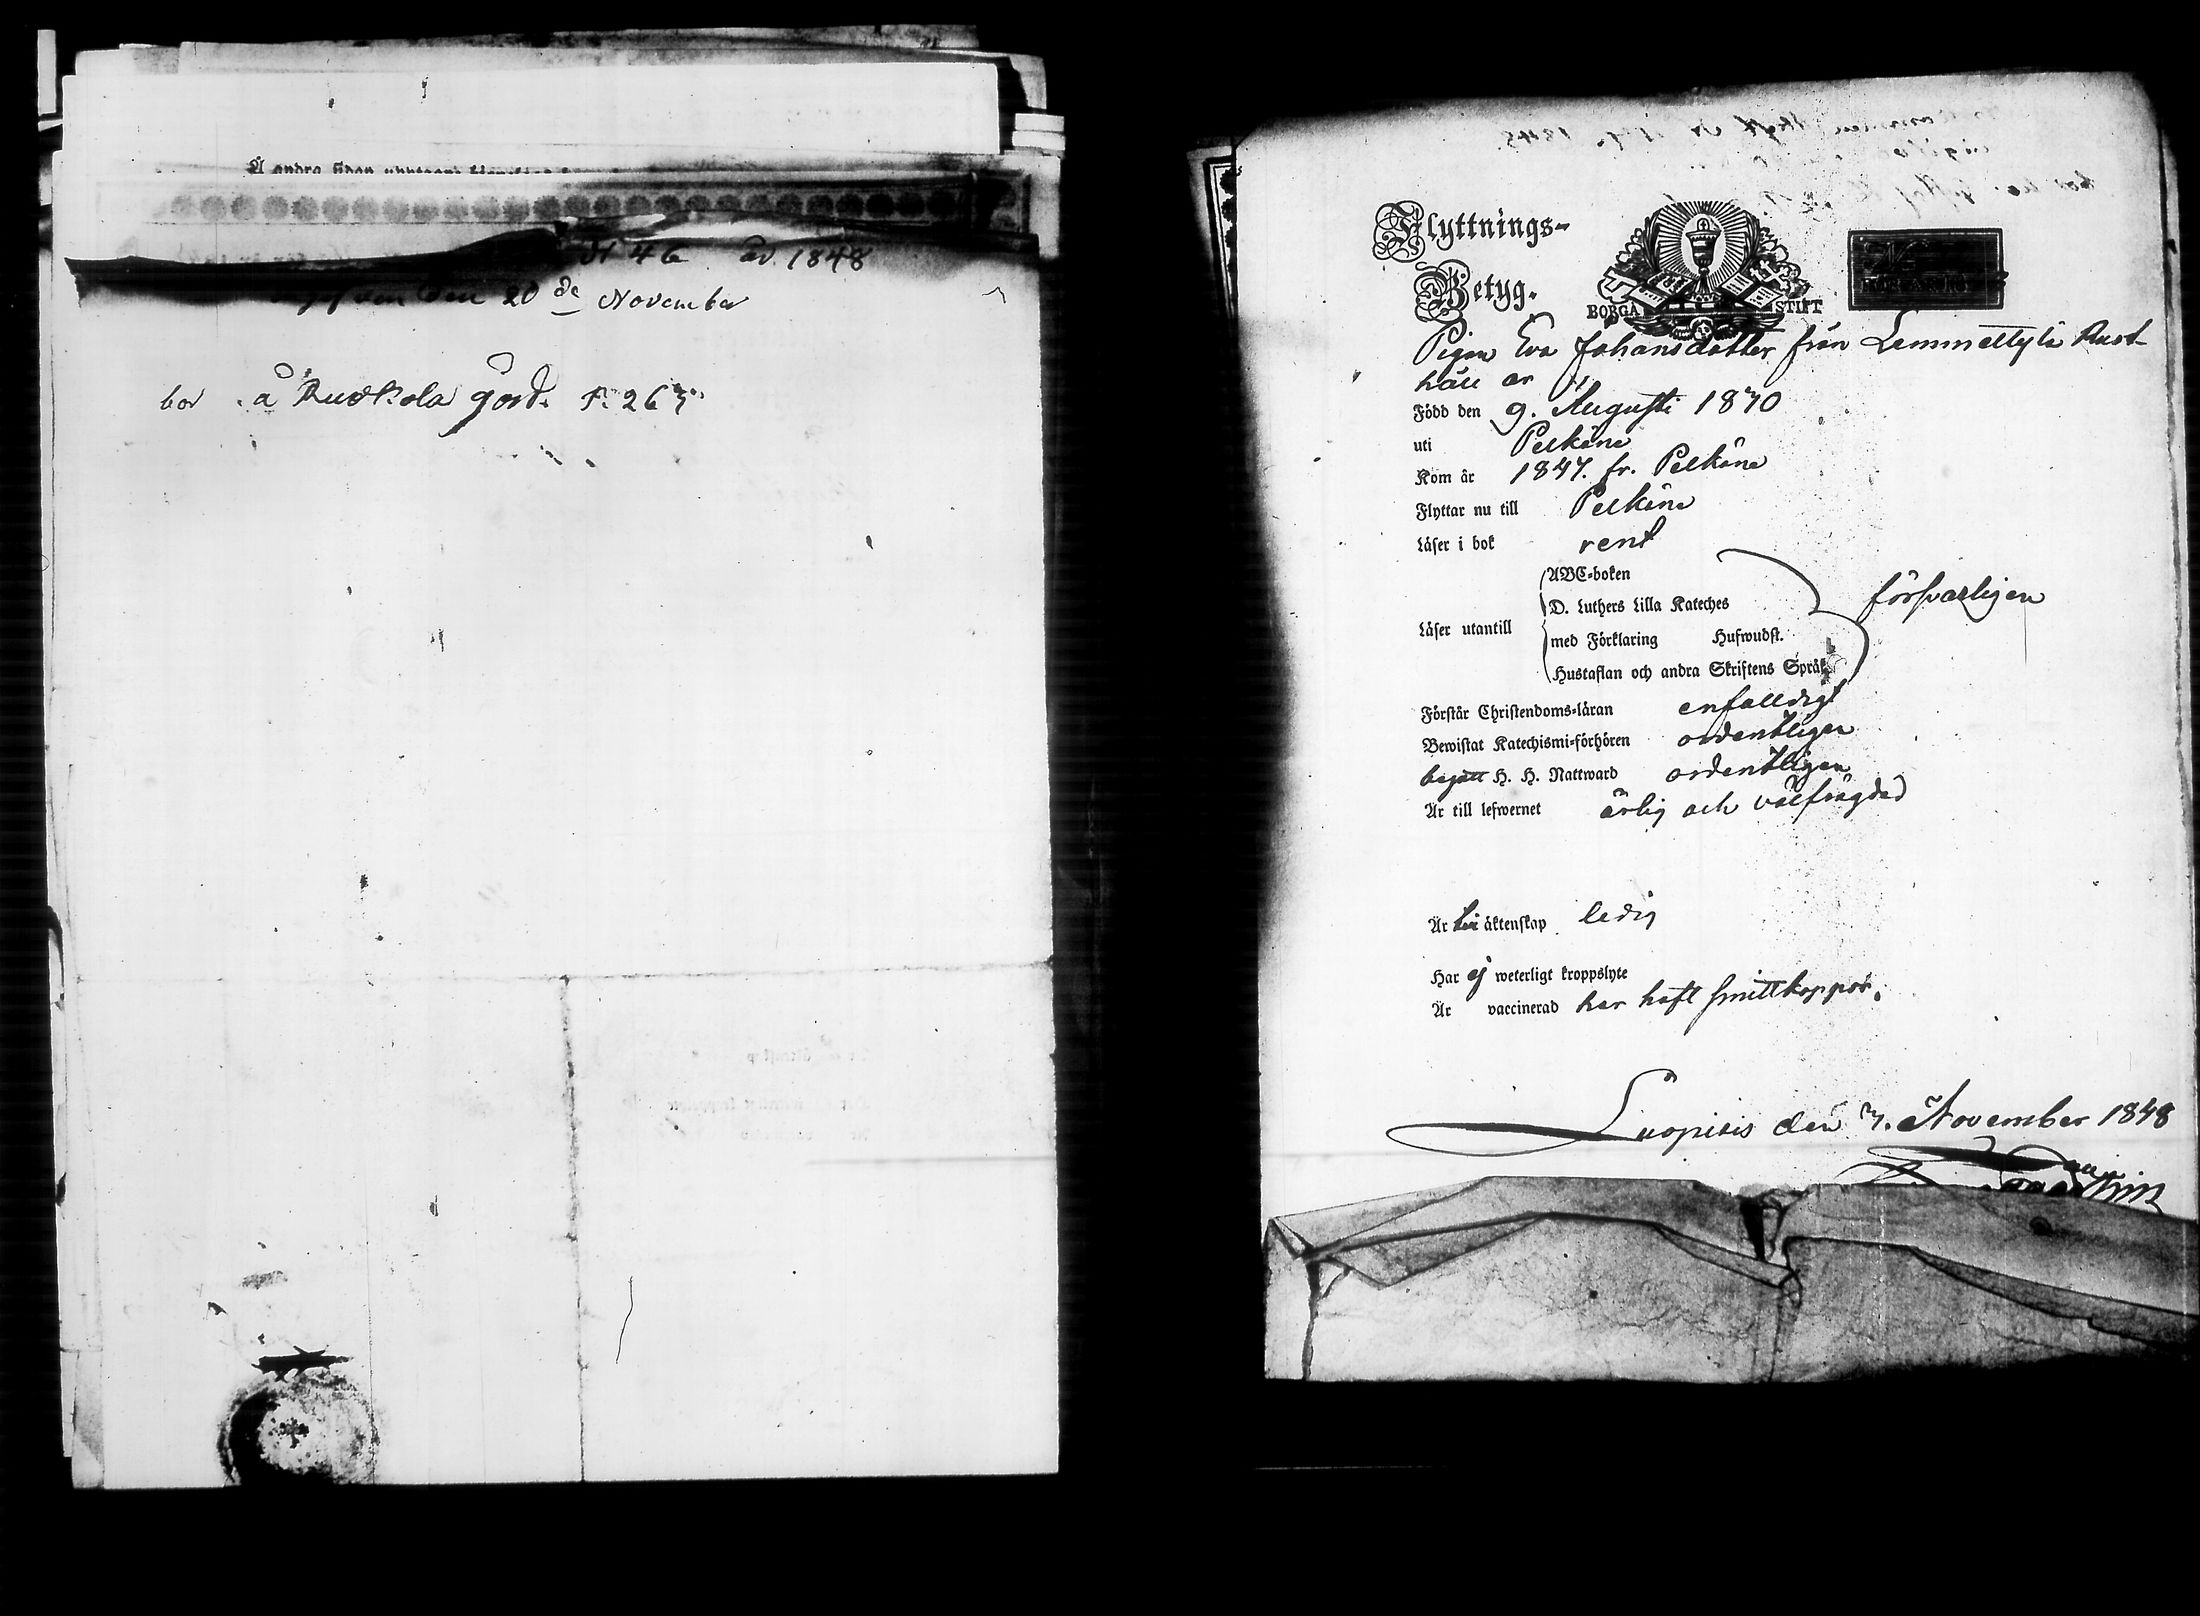 Å andra sidan
N 46 år 1848
den 20de November
bor å Ruokola gård. P. 267
Flyttnings-
Betyg.
BORGÅ STIFT
Pigan Eva Johansdotter från Lemmettylä Rust-
håll är
Född den 9. Augusti 1830
uti Pelkäne
Kom år 1847. fr. Pelkäne
Flyttar nu till Pelkäne
Läser i bok rent
ABC-boken
D. Luthers Lilla Kateches
Läser utantill
med Förklaring Hufwudst.
Hustaflan och andra Skriftens Språk
försvarligen
Förstår Christendoms-läran enfalldigt
Bewistat Katechismi-förhören ordentligen
begått H. H. Nattward ordentligen
Är till lefwernet ärlig och välfrägdad
Är till äktenskap ledig
Har ej weterligt kroppslyte
Är vaccinerad har haft smittkoppor.
Luopiois den 7. November 1848